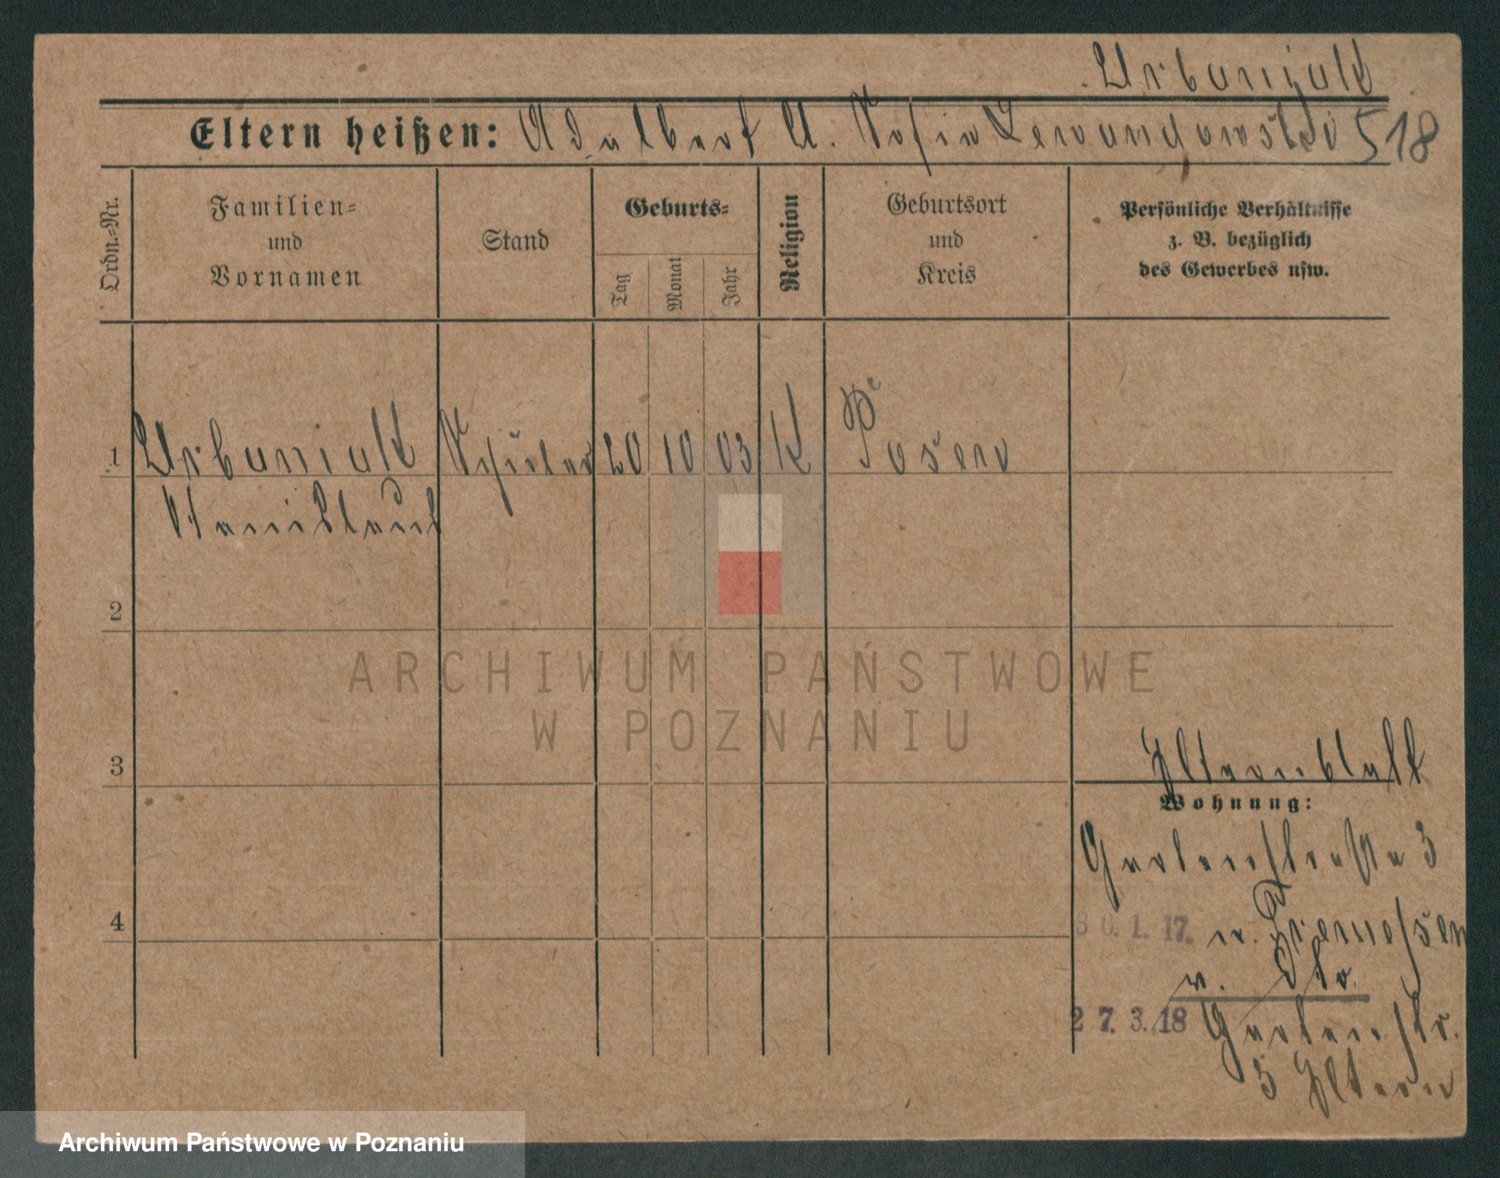 Urbaniak
Eltern heißen: Adalbert u. Sofia Lewandowska 518
Ordn.-Nr.
Familien-
und
Vornamen
Stand
Geburts-
Tag
Monat
Jahr
Religion
Geburtsort
und
Kreis
Persönliche Verhältnisse
z. B. bezüglich
des Gewerbes usw.
1 Urbaniak Schüler 20 10 03 K Posen
Stanislaus
2
ARCHIWUM PAŃSTWOWE
W POZNANIU
3
Elternblatt
Wohnung:
Gartenstraße 3
4
30. 1. 17. n. Tremessen
v. dto.
27. 3. 18 Gartenstr.
5 Eltern
Archiwum Państwowe w Poznaniu